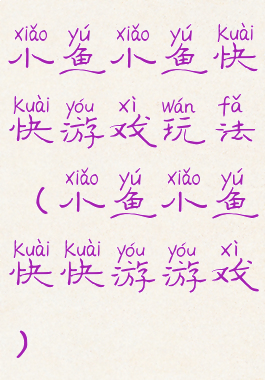 xiǎo yú xiǎo yú kuài
小鱼小鱼快
kuài yóu xì wán fǎ
快游戏玩法
xiǎo yú xiǎo yú
(小鱼小鱼
kuài kuài yóu yóu xì
快快游游戏
)